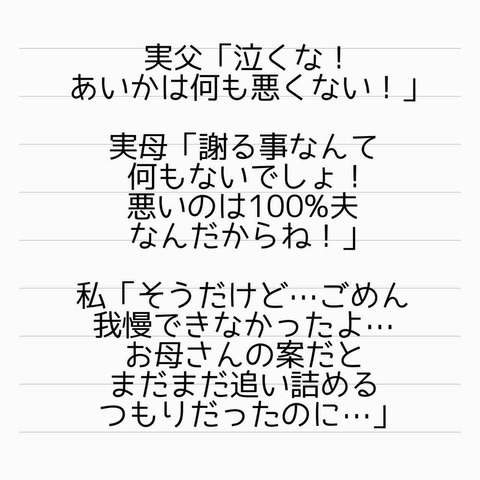 実父「泣くな！
あいかは何も悪くない！」
実母「謝る事なんて
何もないでしょ！
悪いのは100%夫
なんだからね！」
私「そうだけど…ごめん
我慢できなかったよ…
お母さんの案だと
まだまだ追い詰める
つもりだったのに…」